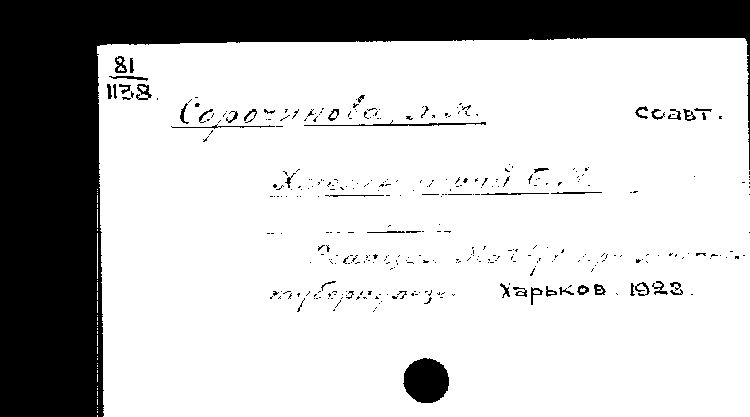 81
1138.
Сорочинова, Л.М. соавт.
Б.И.
Реакция при
туберкулезе. Харьков. 1928.